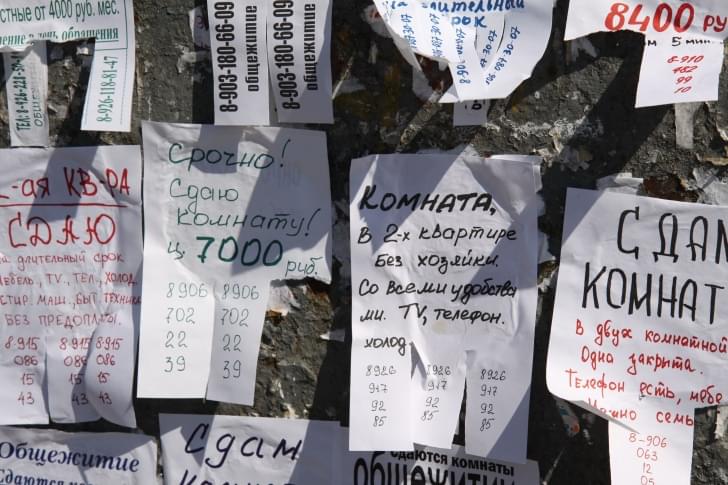 стные от 4000 руб. мес.
ение в день обращения
общежитие
8-926-118-81-47
8-903-180-66-09
общежитие
8-903-180-66-09
общежитие
длительный
срок
8400 ру
5 мин
8-910
482
99
10
-ая КВ-РА
СДАЮ
на длительный срок
Мебель, TV, ТЕЛ, ХОЛОД
СТИР. МАШ., БЫТ ТЕХНИКА
БЕЗ ПРЕДОПЛАТЫ.
8.915 8.915 8.915
086 086 086
15 15 15
43 43 43
Срочно!
Сдаю
комнату!
ц 7000 руб.
8906 8906
702 702
22 22
39 39
КОМНАТА,
В 2-х КВАРТИРЕ
БЕЗ ХОЗЯЙКИ.
СО ВСЕМИ УДОБСТВА
МИ. TV, ТЕЛЕФОН.
ХОЛОД
8926 8926 8926
917 917 917
92 92 92
85 85 85
СДАМ
КОМНАТ
В двух комнатной
Одна закрыта.
Телефон есть, мебе
Можно семь
8-906
063
12
05
Общежитие
Сдаются
Сдам
сдаются комнаты
общежитии